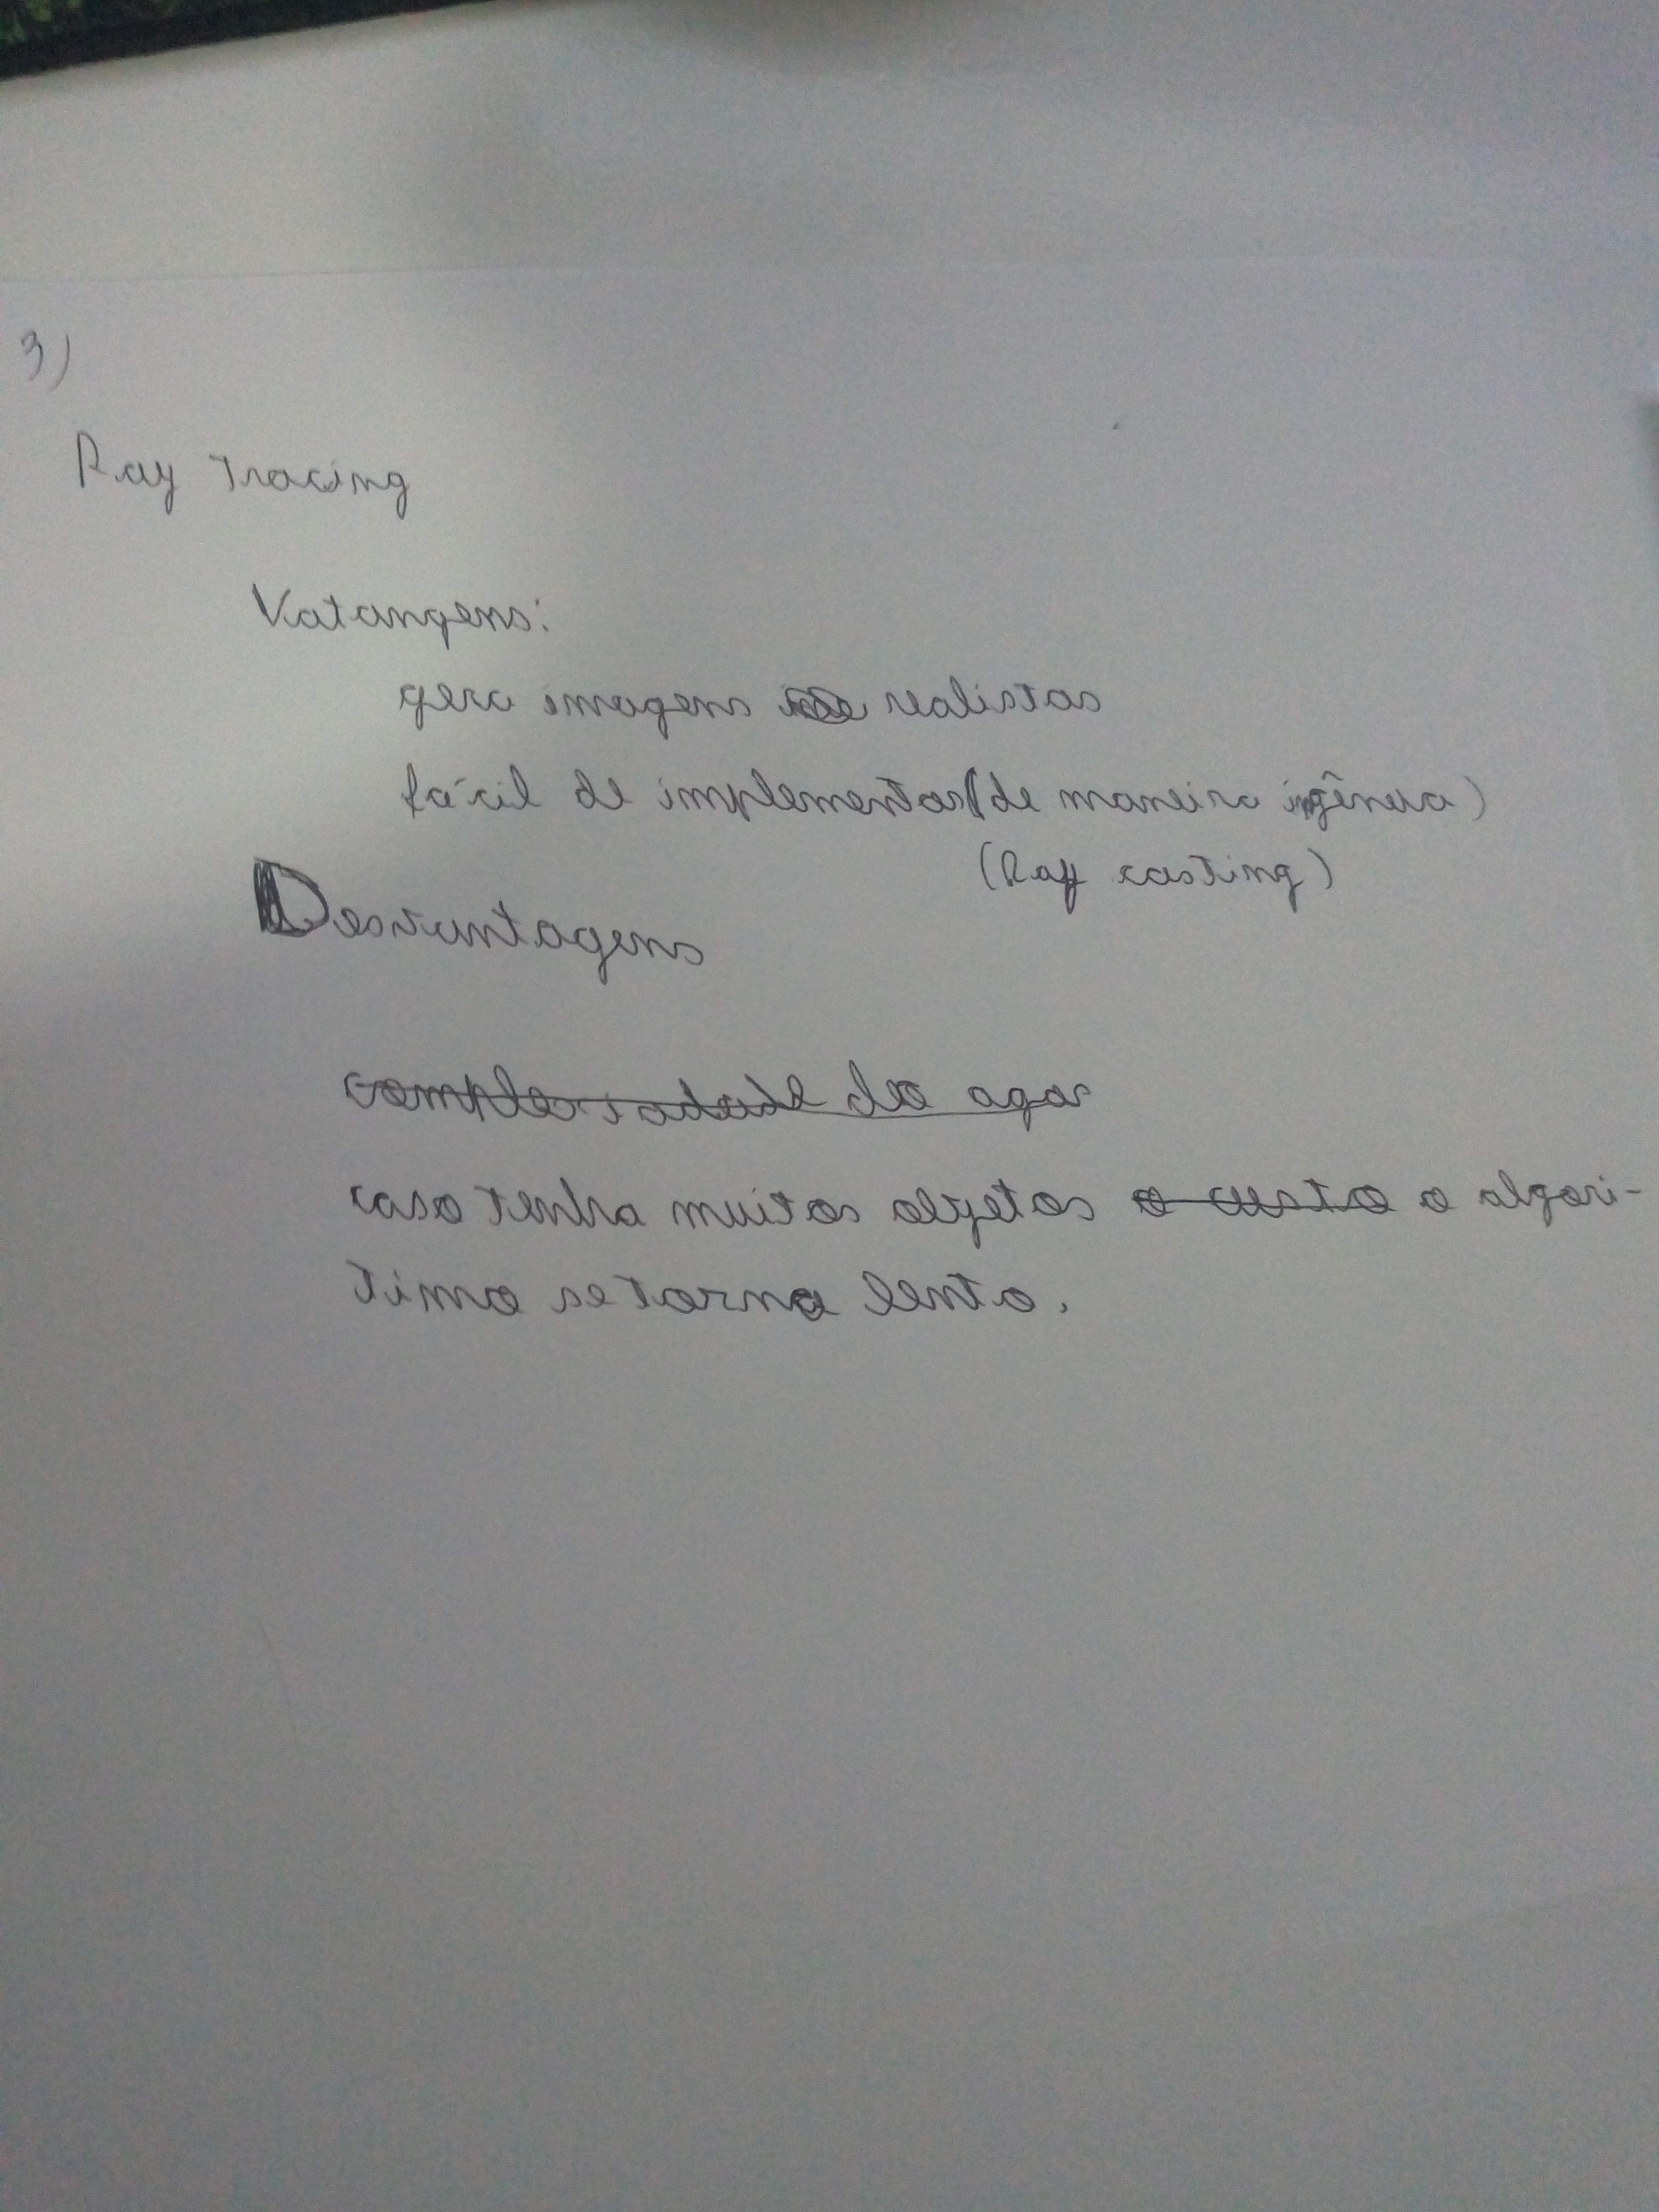 3)
Ray Tracing
Vatangens:
gera imagens realistas
fácil de implementar (de maneira ingênua)
(Ray casting)
Desvantagens
complexidade do ago
caso tenha muitos objetos o custo o algori-
timo se torna lento.